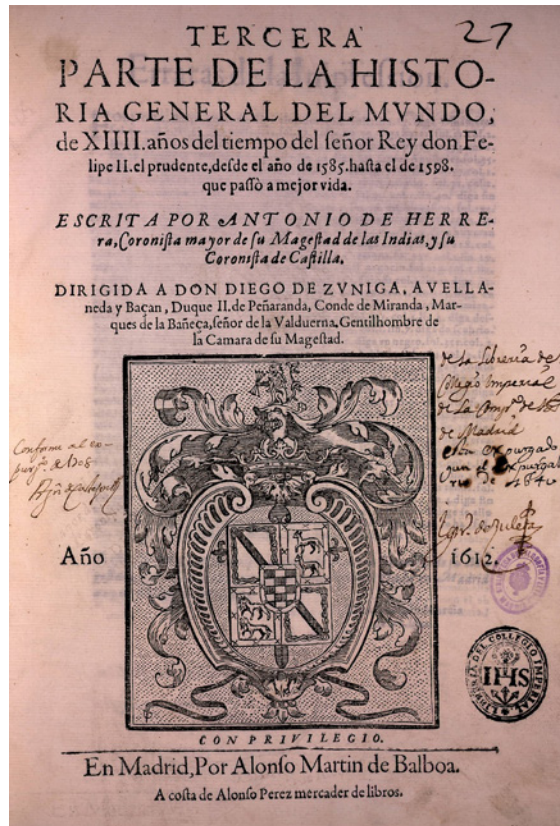 27
TERCERA
PARTE DE LA HISTO-
RIA GENERAL DEL MVNDO,
de XIIII. años del tiempo del ſeñor Rey don Fe-
lipe II. el prudente, deſde el año de 1585. haſta el de 1598.
que paſsò a mejor vida.
ESCRITA POR ANTONIO DE HERRE-
ra, Coroniſta mayor de ſu Mageſtad de las Indias, y ſu
Coroniſta de Caſtilla.
DIRIGIDA A DON DIEGO DE ZVNIGA, AVELLA-
neda y Baçan, Duque II. de Peñaranda, Conde de Miranda, Mar-
ques de la Bañeça, ſeñor de la Valduerna. Gentilhombre de
la Camara de ſu Mageſtad.
de la libreria del
Collegio Imperial
de la
de Madrid
de 1640
Conforme al ex-
Año 1612.
LIBRERIA DEL COLLEGIO IMPERIAL
IHS
CON PRIVILEGIO.
En Madrid, Por Alonſo Martin de Balboa.
A coſta de Alonſo Perez mercader de libros.